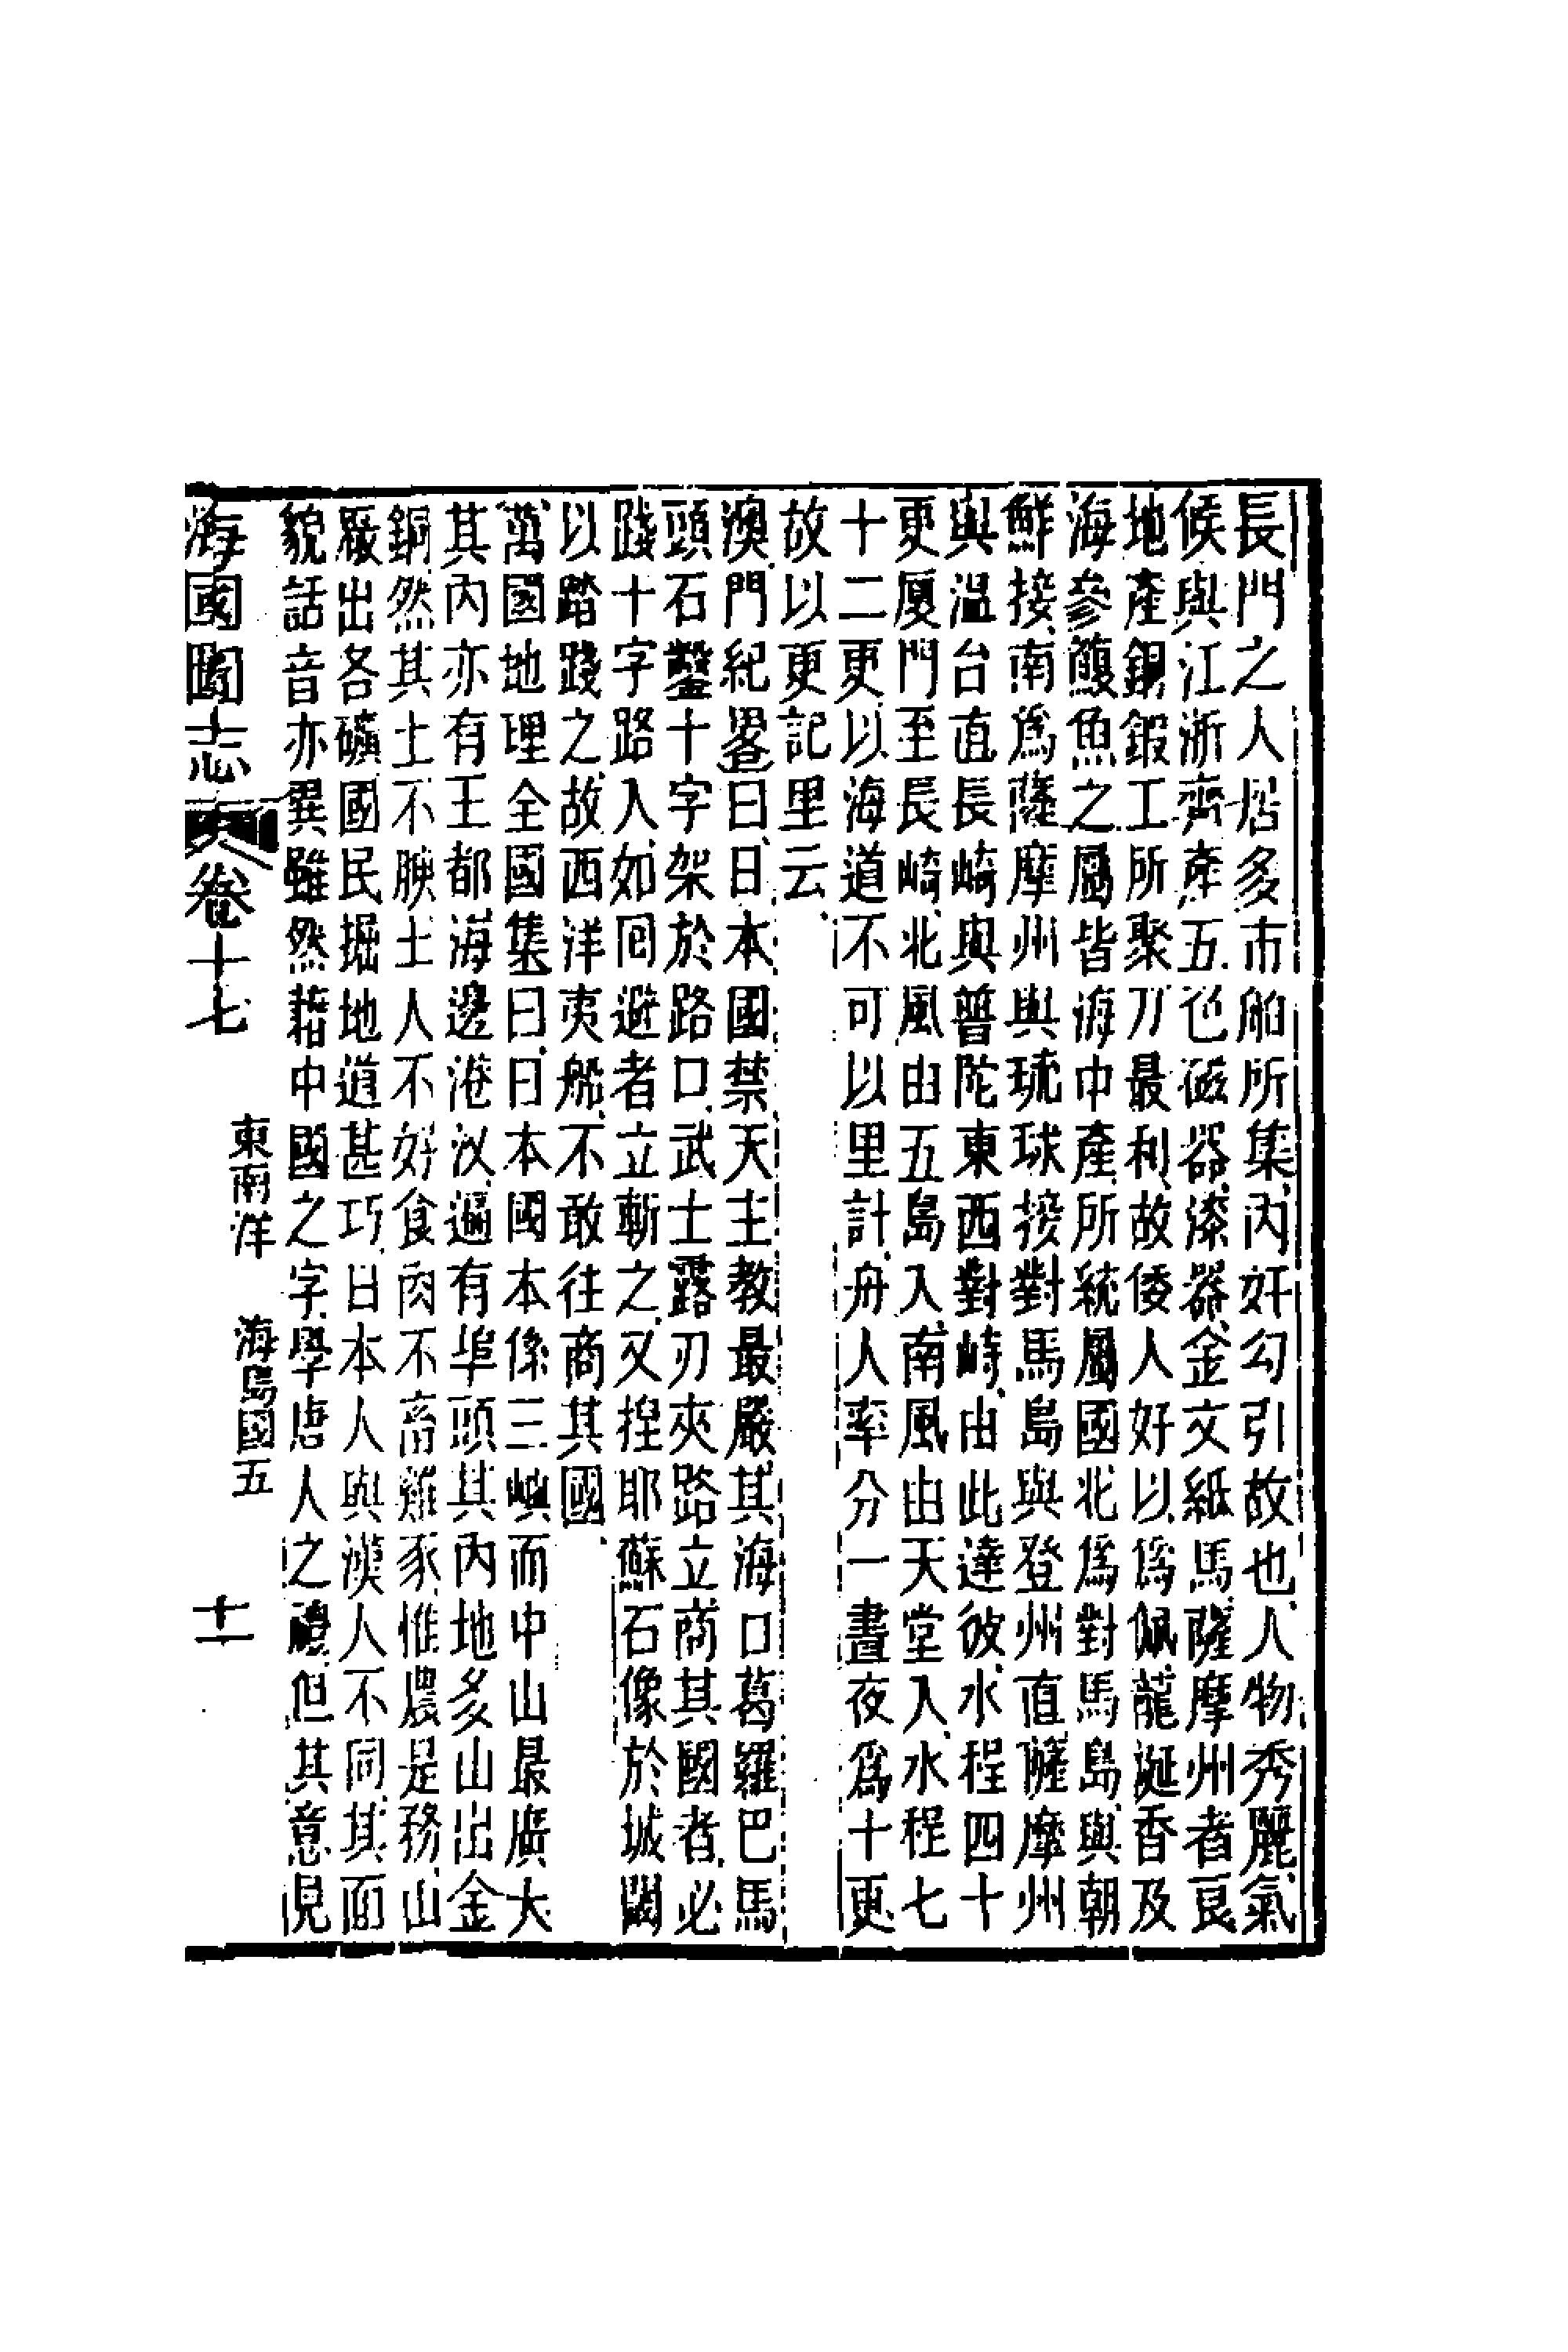 長門之人居多市舶所集內奸勾引故也人物秀麗氣
候與江浙齊產五色磁器漆器金文紙馬薩摩州者良
地產銅鍛工所聚刀最利故倭人好以爲佩龍涎香及
海參鰒魚之屬皆海中產所統屬國北爲對馬島與朝
鮮接南爲薩摩州與琉球接對馬島與登州直薩摩州
與温台直長崎與普陀東西對峙由此達彼水程四十
更厦門至長崎北風由五島入南風由天堂入水程七
十二更以海道不可以里計舟人率分一晝夜爲十更
故以更記里云
澳門紀畧曰日本國禁天主教最嚴其海口葛羅巴馬
頭石鑿十字架於路口武士露刃夾路立商其國者必
踐十字路入如囘避者立斬之又揑耶蘇石像於城閾
以踏踐之故西洋夷船不敢往商其國
萬國地理全國集曰日本國本係三嶼而中山最廣大
其內亦有王都海邊港汊遍有埠頭其內地多山出金
銅然其土不腴土人不好食肉不畜雞豕惟農是務山
厰出各礦國民掘地道甚巧日本人與漢人不同其面
貌話音亦異雖然藉中國之字學唐人之禮但其意見
海國圖志 卷十七 東南洋 海島國五 十一